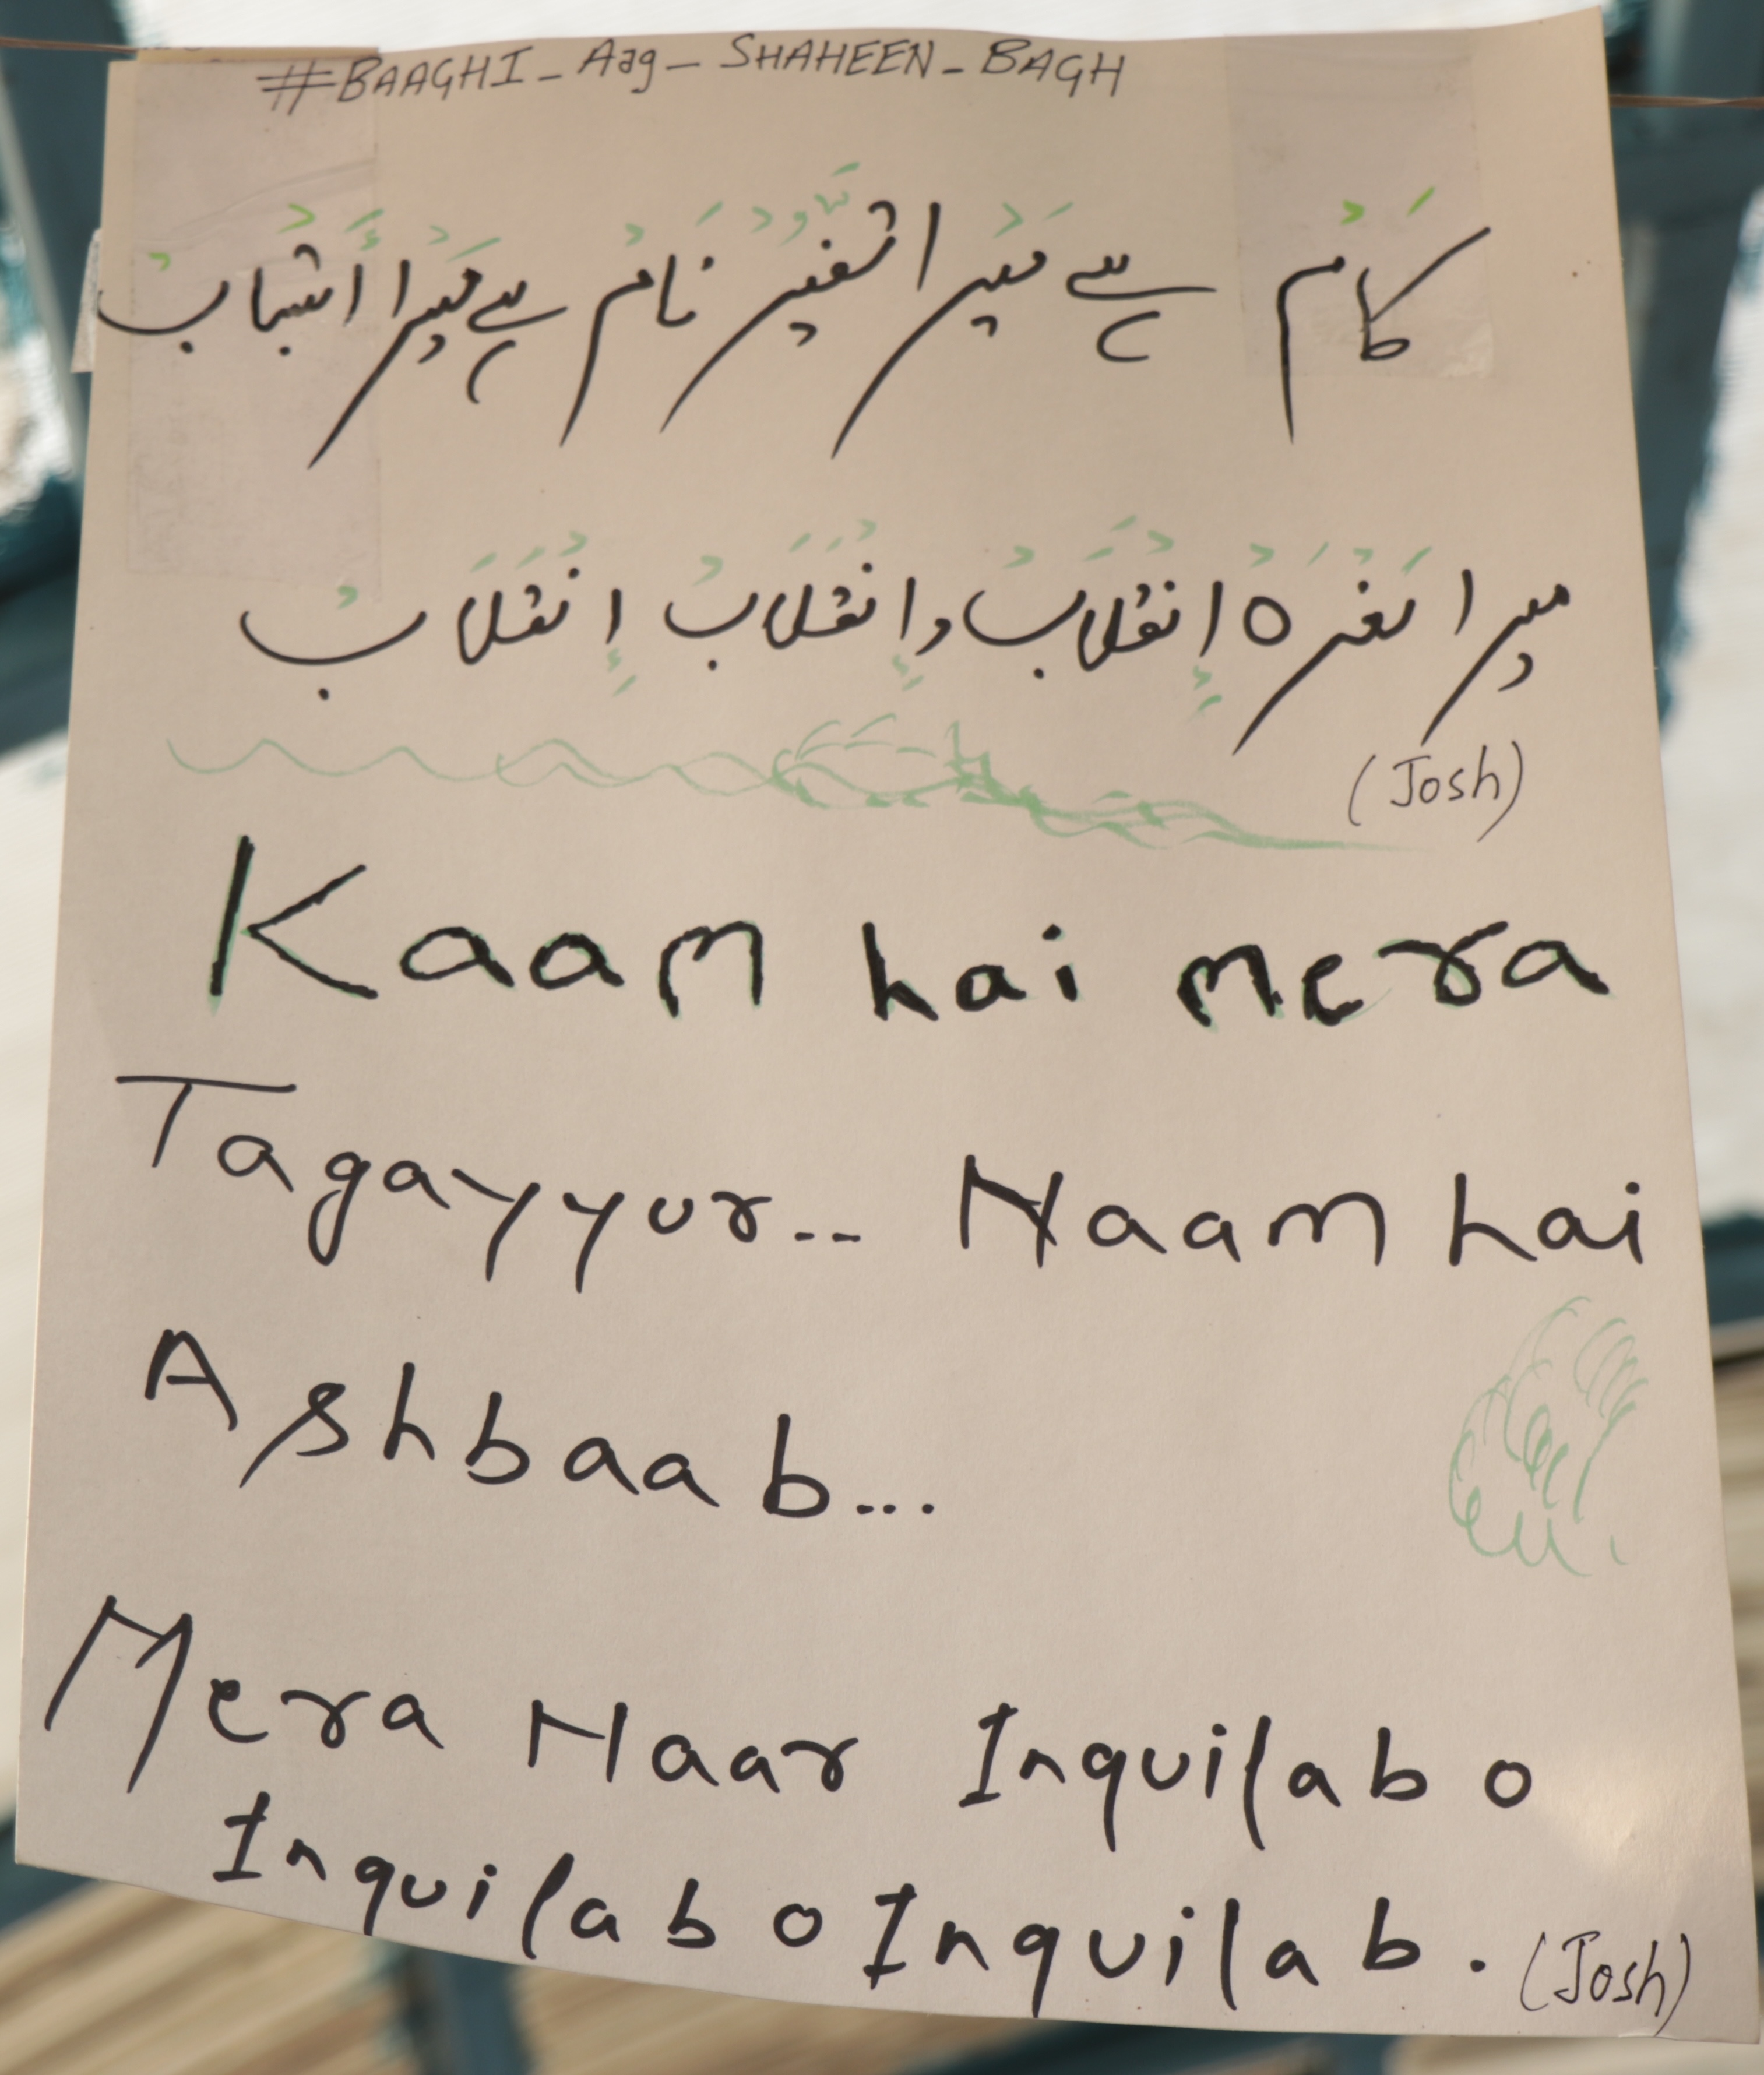 #BAAGHI_Aag_SHAHEEN_BAGH
کَامْ ہے مَیْرا تَغَیُّرْ نَامْ ہے مَیْرا أَشْبَابْ
میرا نَعْرَہْ إِنْقَلَابْ و إِنْقَلَابْ إِنْقَلَابْ
(Josh)
Kaam hai mera
Tagayyur.. Naam hai
Ashbaab...
Mera Naar Inquilab o
Inquilab o Inquilab. (Josh)